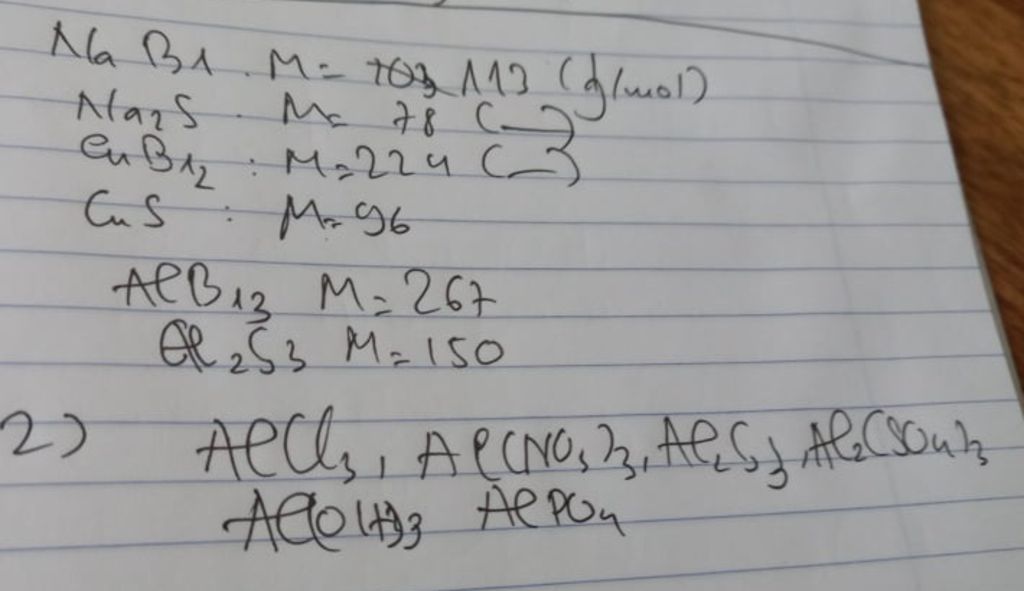 NaBr. M = 113 (g/mol)
Na2S. M = 78 (—)
CuBr2 : M = 224 (—)
CuS : M = 96
AlBr3 M = 267
Al2S3 M = 150
2) AlCl3, Al(NO3)3, Al2S3, Al2(SO4)3
Al(OH)3 AlPO4